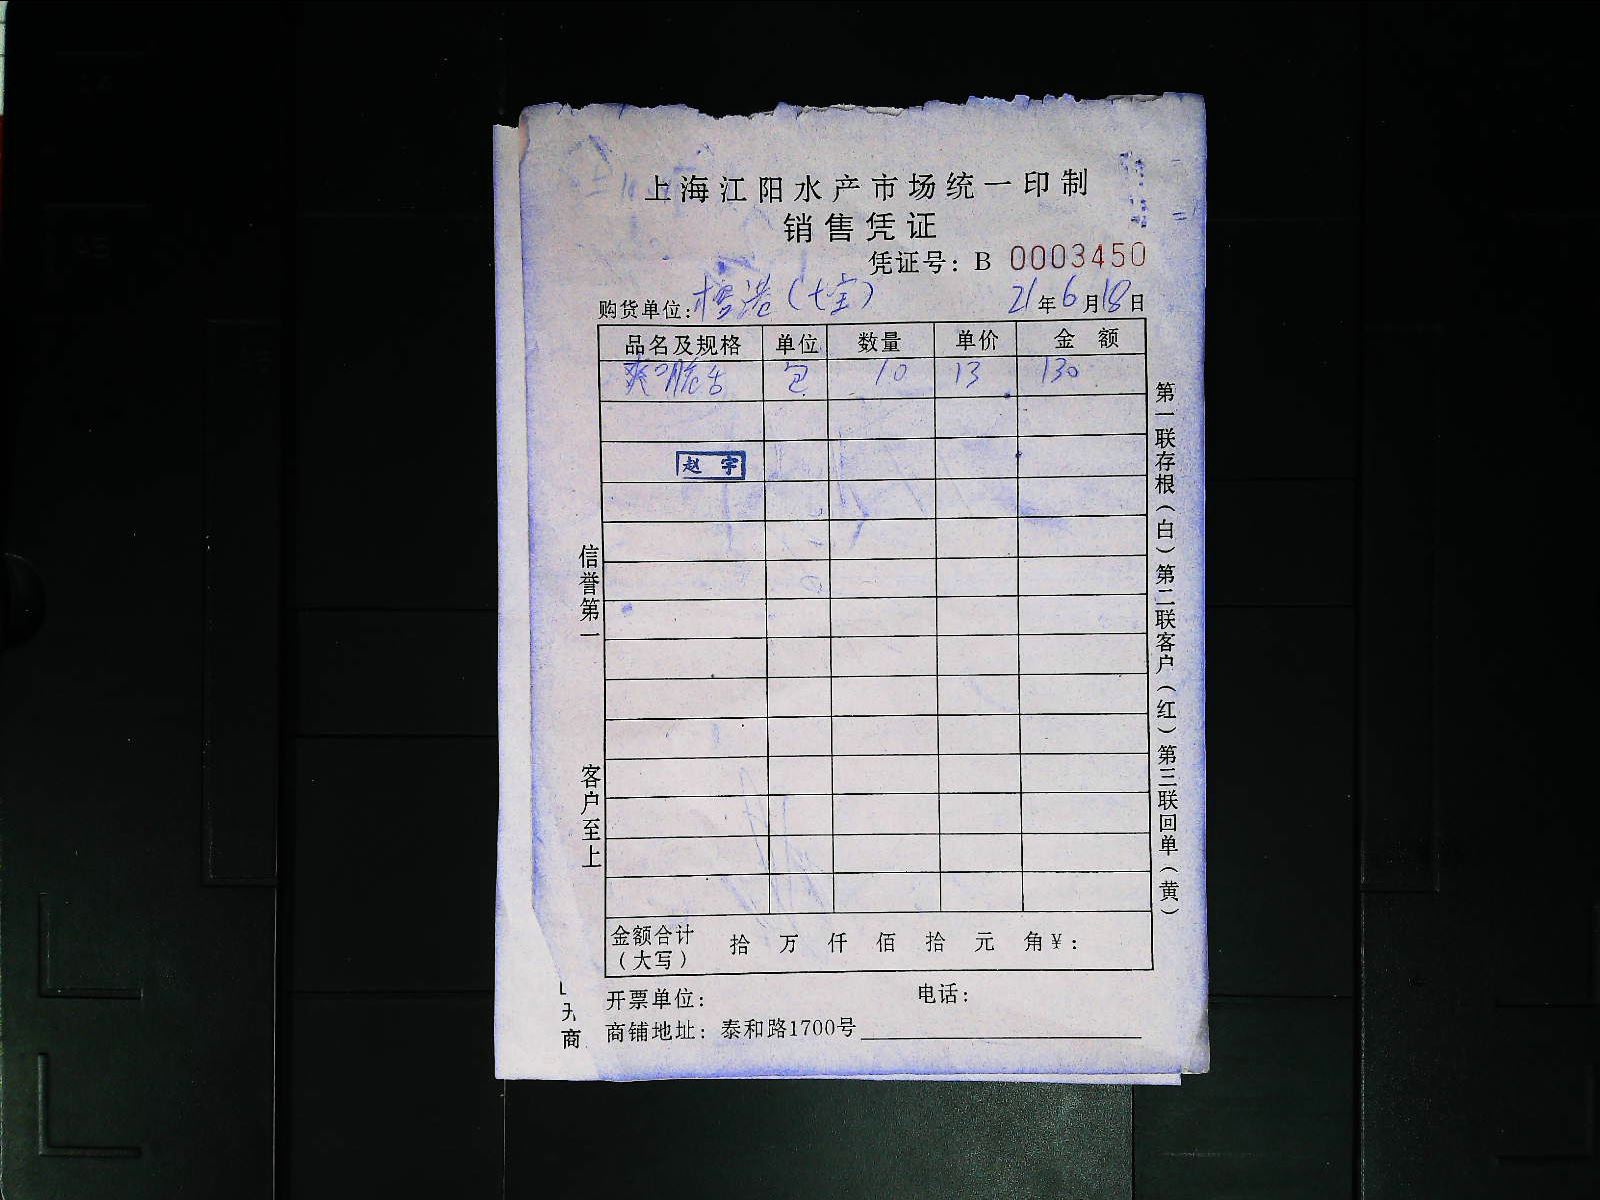 上海江阳水产市场统一印制
销售凭证
凭证号：B 0003450
购货单位：檀港（七宝） 21年6月18日
品名及规格 单位 数量 单价 金额
爽口脆舌 包 10 13 130
赵宇
信誉第一
客户至上
第一联存根（白）第二联客户（红）第三联回单（黄）
金额合计（大写） 拾 万 仟 佰 拾 元 角 ¥：
开票单位： 电话：
商铺地址：泰和路1700号
商